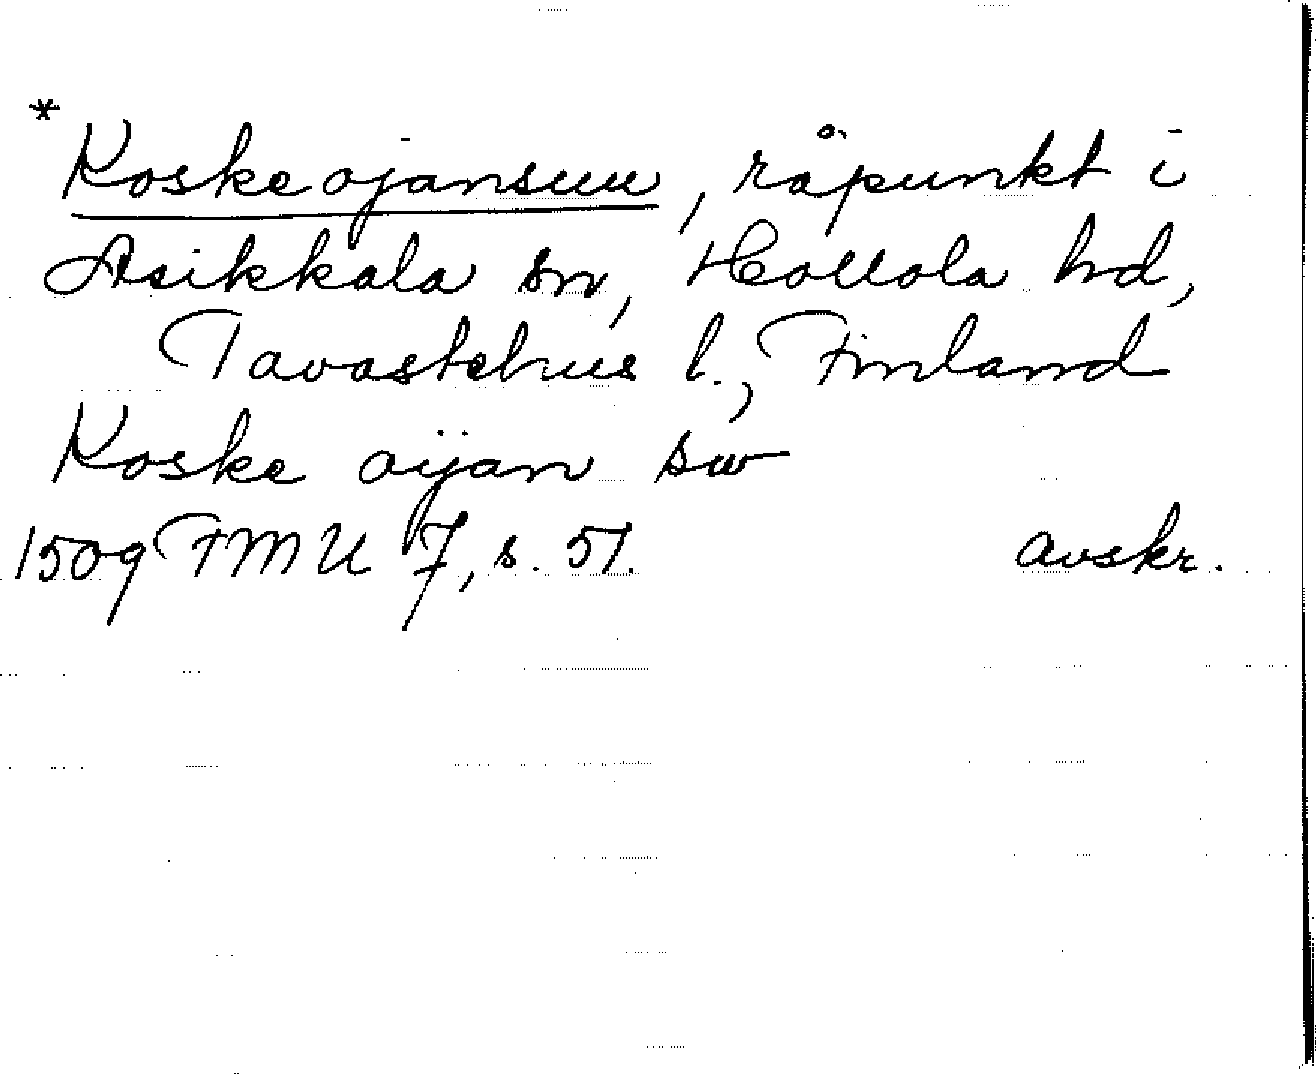 * Koskeojansuu, råpunkt i
Asikkala sn, Hollola hd,
Tavastehus l., Finland
Koske oijan sw
1509 FMU 7, s. 51. avskr.